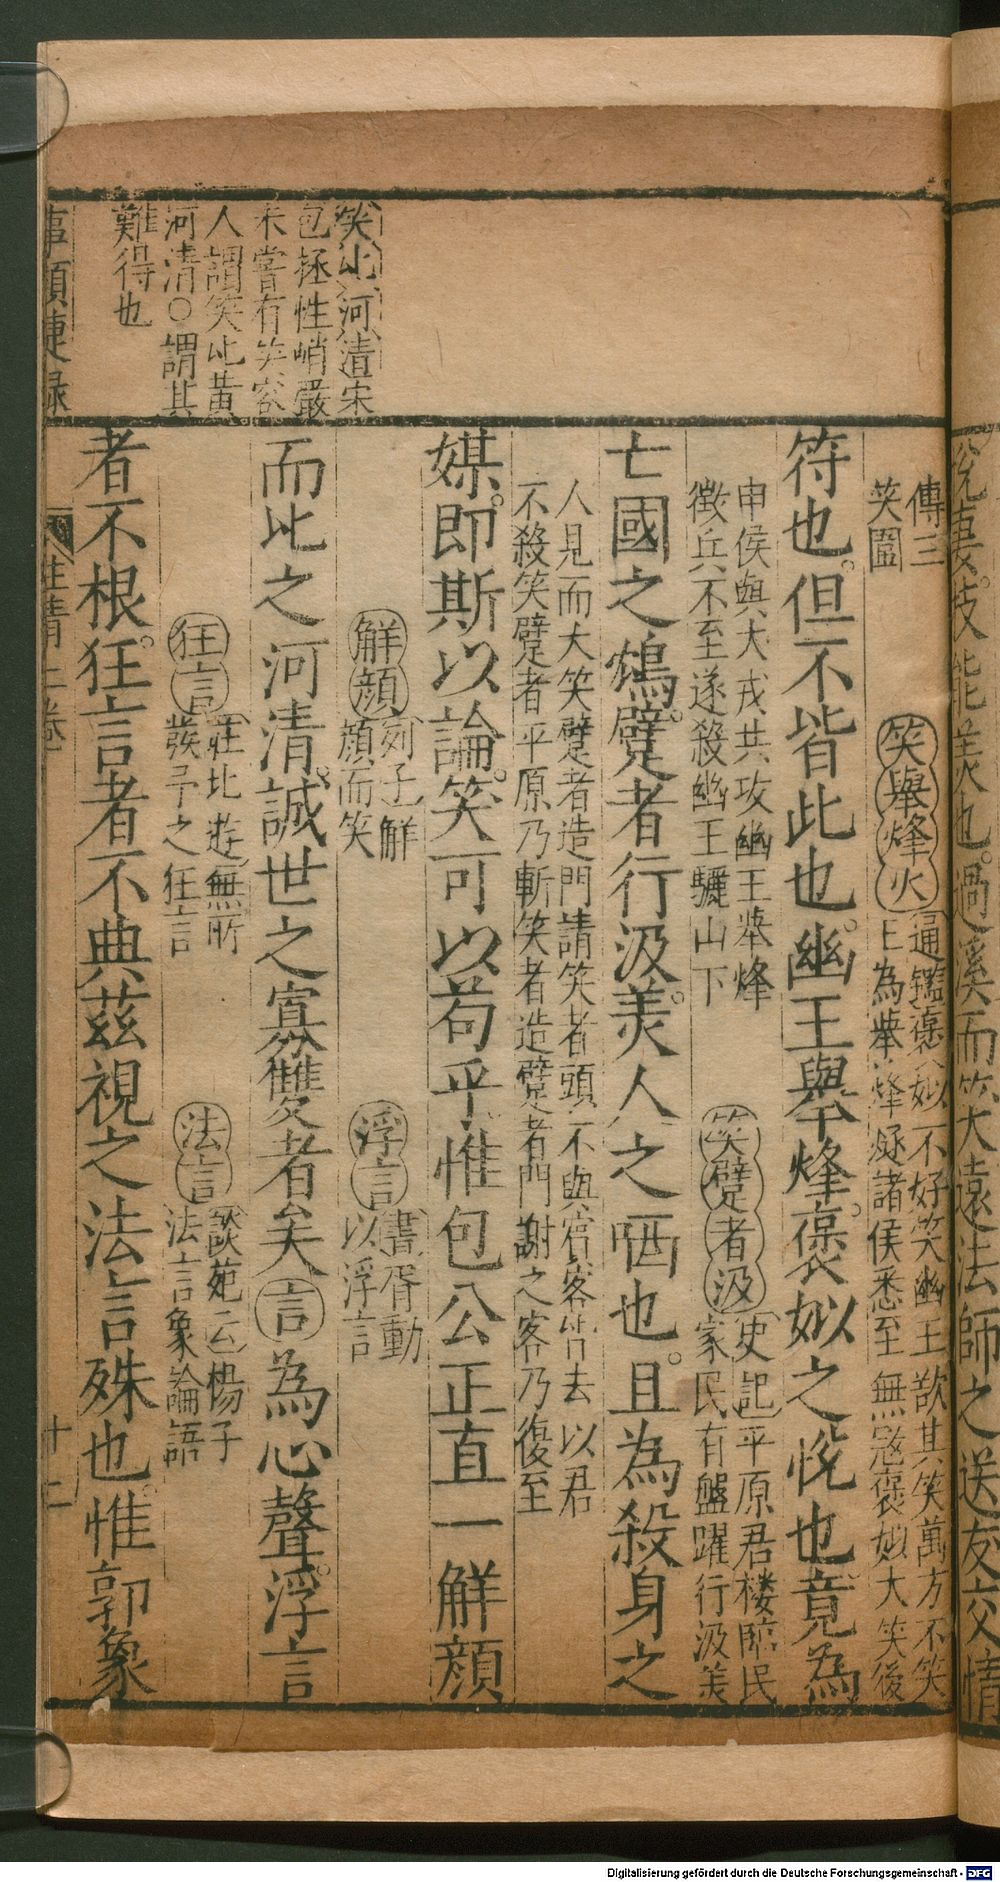 悅妻
技能美也過溪而笑大遠法師之送友交情
傳三
笑圖
笑舉烽火
通鑑褒姒不好笑幽王欲其笑萬方不笑
王為舉烽燧諸侯悉至無寇褒姒大笑後
符也。但不皆此也。幽王舉烽。褒姒之悅也。竟為
申侯與犬戎共攻幽王舉烽
徵兵不至遂殺幽王驪山下
笑躄者汲
史記平原君楼臨民
家民有盤躍行汲美
亡國之鴆。躄者行汲。美人之哂也。且為殺身之
人見而大笑躄者造門請笑者頭不與賓客皆去以君
不殺笑躄者平原乃斬笑者造躄者門謝之客乃復至
媒。即斯以論。笑可以苟乎。惟包公正直一解顏
解顏
列子解
顏而笑
浮言
書胥動
以浮言
而比之河清。誠世之寡雙者矣言為心聲。浮言
狂言
莊比遊無所
發予之狂言
法言
談苑云楊子
法言象論語
者不根。狂言者不典茲視之法言殊也。惟郭象
笑比河清宋
包拯性峭嚴
未嘗有笑容
人謂笑比黃
河清○謂其
難得也
事類捷錄
性情二卷
十二
Digitalisierung gefördert durch die Deutsche Forschungsgemeinschaft - DFG